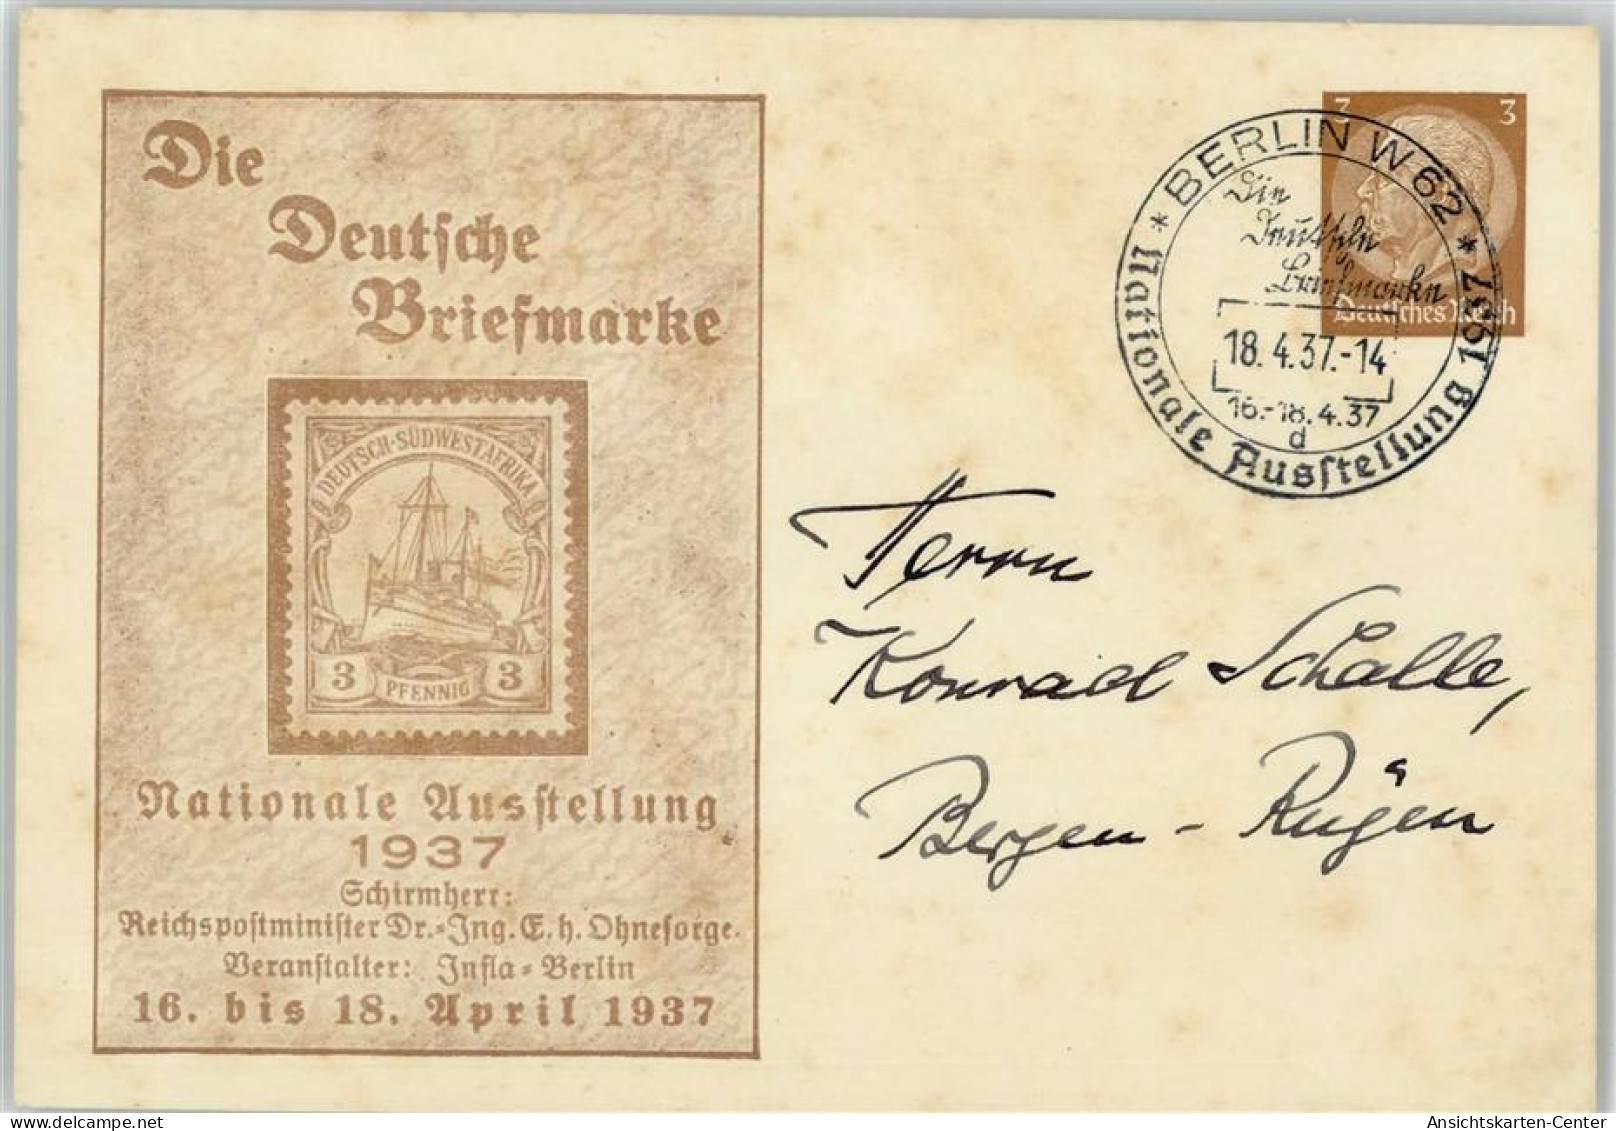 Die
Deutsche
Briefmarke
DEUTSCH-SÜDWESTAFRIKA
3 PFENNIG 3
Nationale Ausstellung
1937
Schirmherr:
Reichspostminister Dr.-Ing. E. h. Ohnesorge.
Veranstalter: Infla-Berlin
16. bis 18. April 1937
3 3
Deutsches Reich
* BERLIN W 62 *
Die
Deutsche
Briefmarke
18.4.37.-14
16.-18.4.37
d
Nationale Ausstellung 1937
Herrn
Konrad Schalle,
Bergen - Rügen
Ansichtskarten-Center